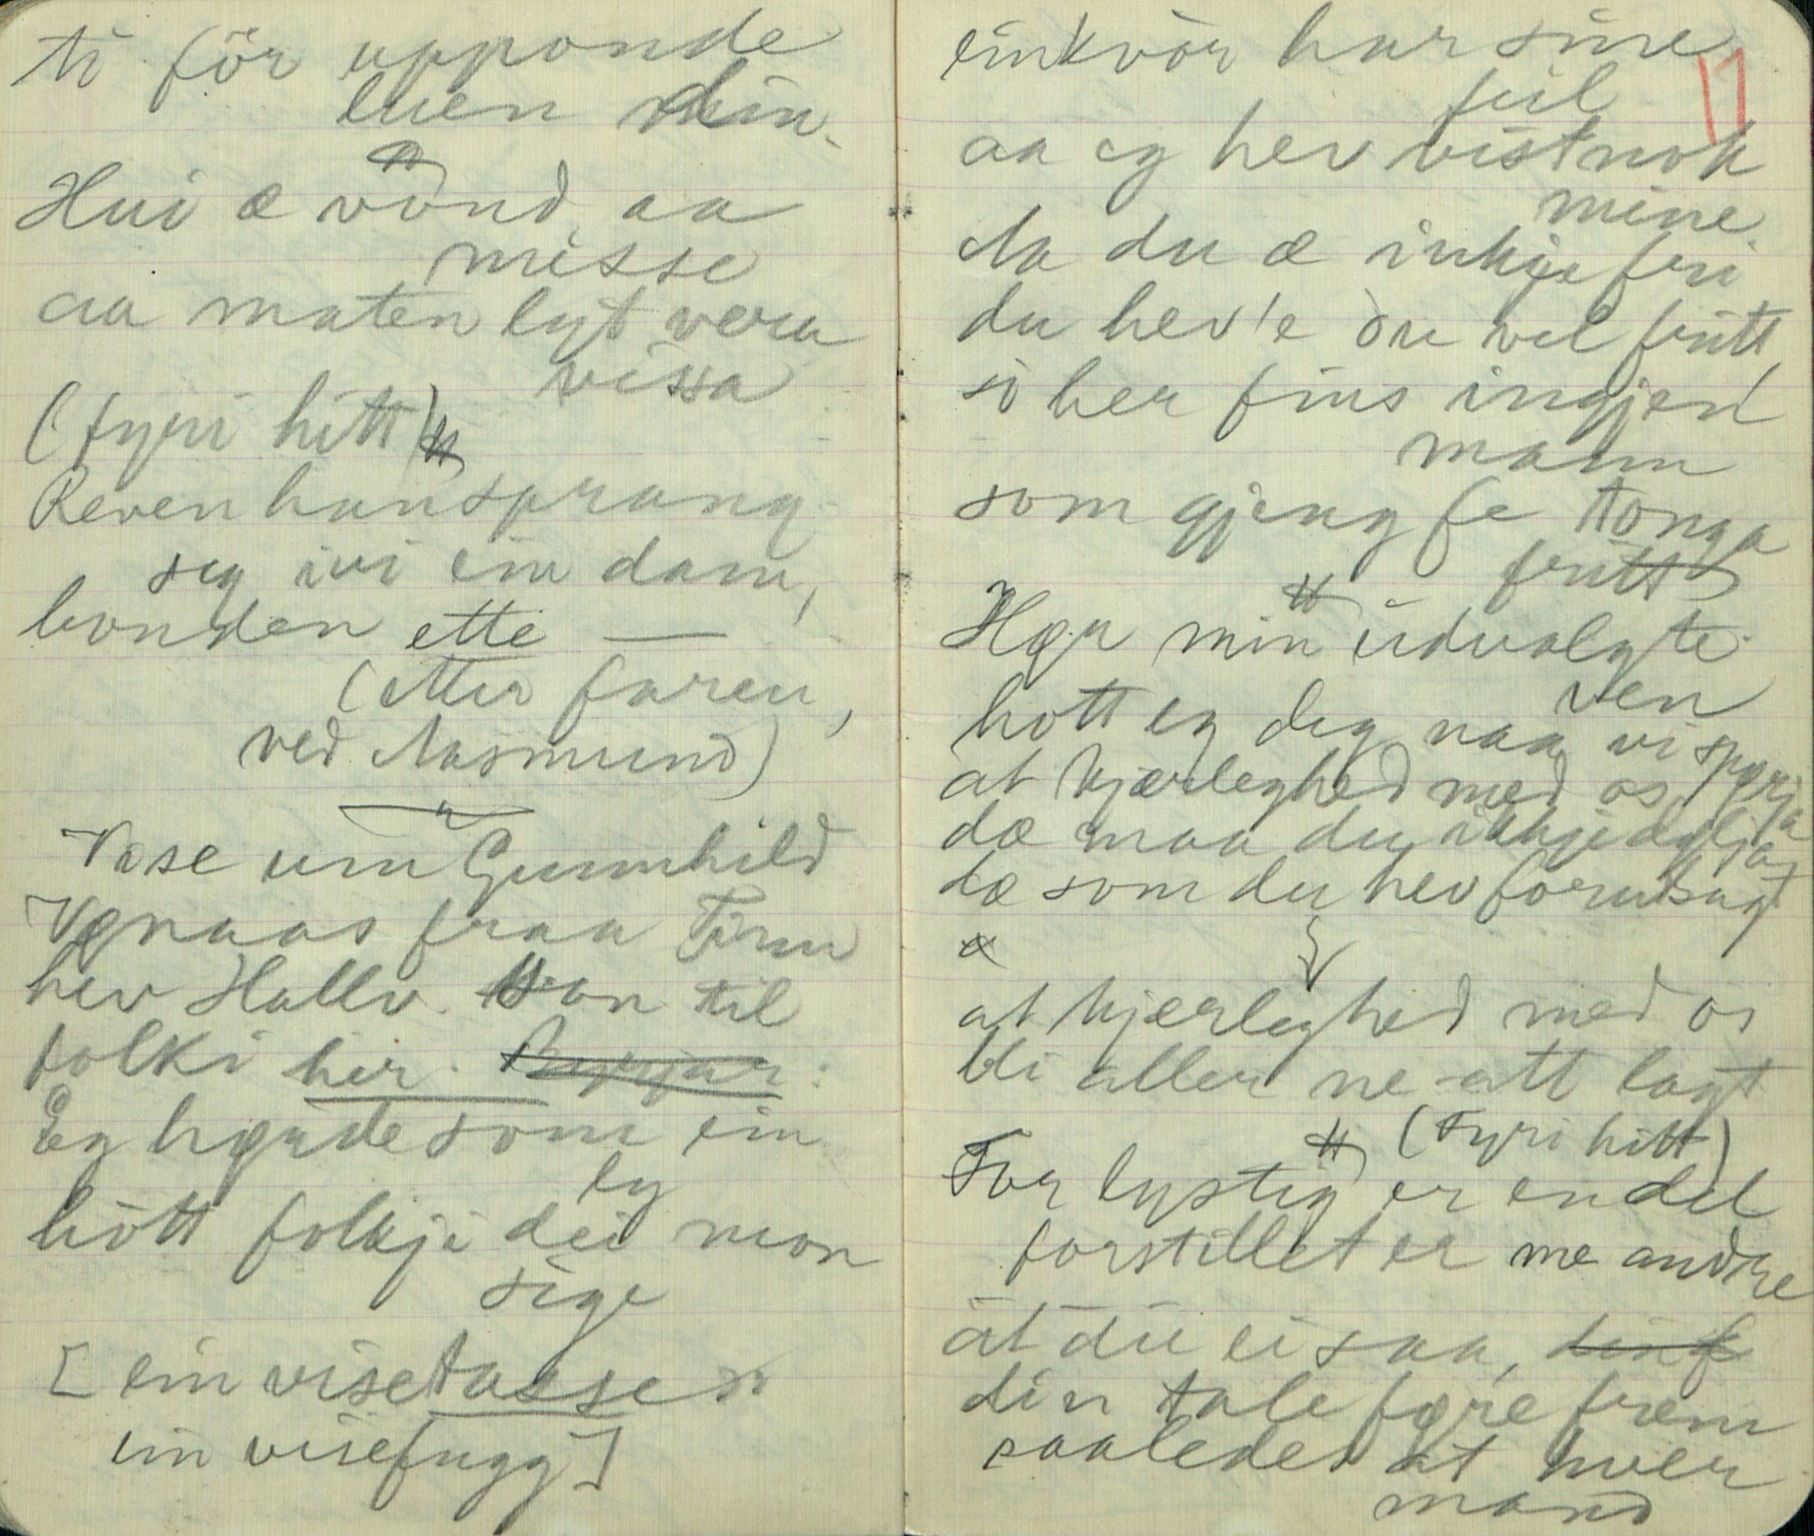 ti för upponde
luen din.
Hui æ vond aa
misse
aa maten lyt vera
vissa
(fyri hitt)
Reven han sprang
seg ivi ein dam,
bonden ette —
(etter faren,
ved Aasmund)
Vise um Gunnhild
Vønaas fraa Finn
hev Hallv. Von til
folki her.
Eg høyrde som ein
ly
hött folkji dei mon
sige
[ ein visetasse
ein visefugg ]
einkvör har sine
feil
17
aa eg hev vistnok
mine
Aa du æ inkje fri
du hev'e du vel fritt
so her fins ingjen
mann
som gjeng fe tonga
fritt
Hør min udvalgte
ven
hott eg deg naa vi spørja
at kjærleghed med os
dæ maa du ikkje dølja
dæ som du hev forutsagt
at kjerleghed med os
bli aller ne-att lagt
(Fyri hitt)
For lystig er en del
forstillet er me andre
at du ei saa,
din tale føre frem
saaledes at hver
mand